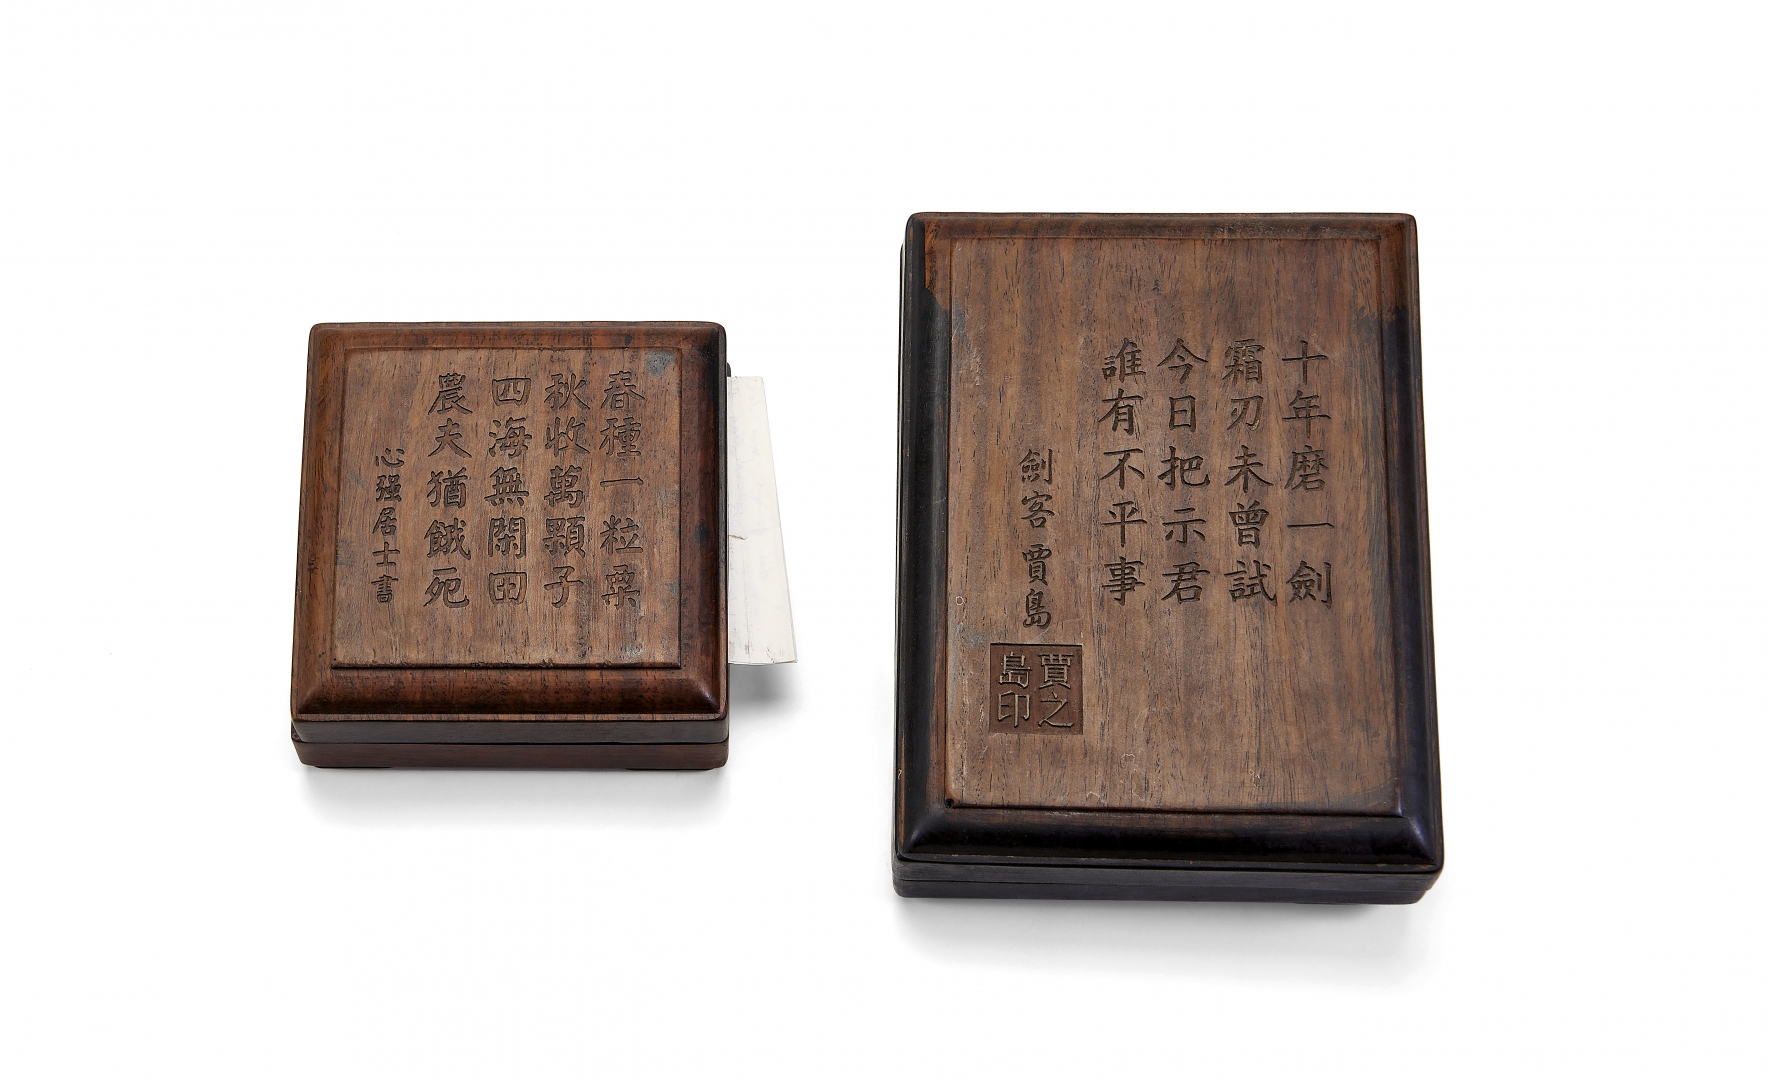 春種一粒粟
秋收萬顆子
四海無閑田
農夫猶餓死
心强居士書
十年磨一劍
霜刃未曾試
今日把示君
誰有不平事
劍客賈島
賈之
島印